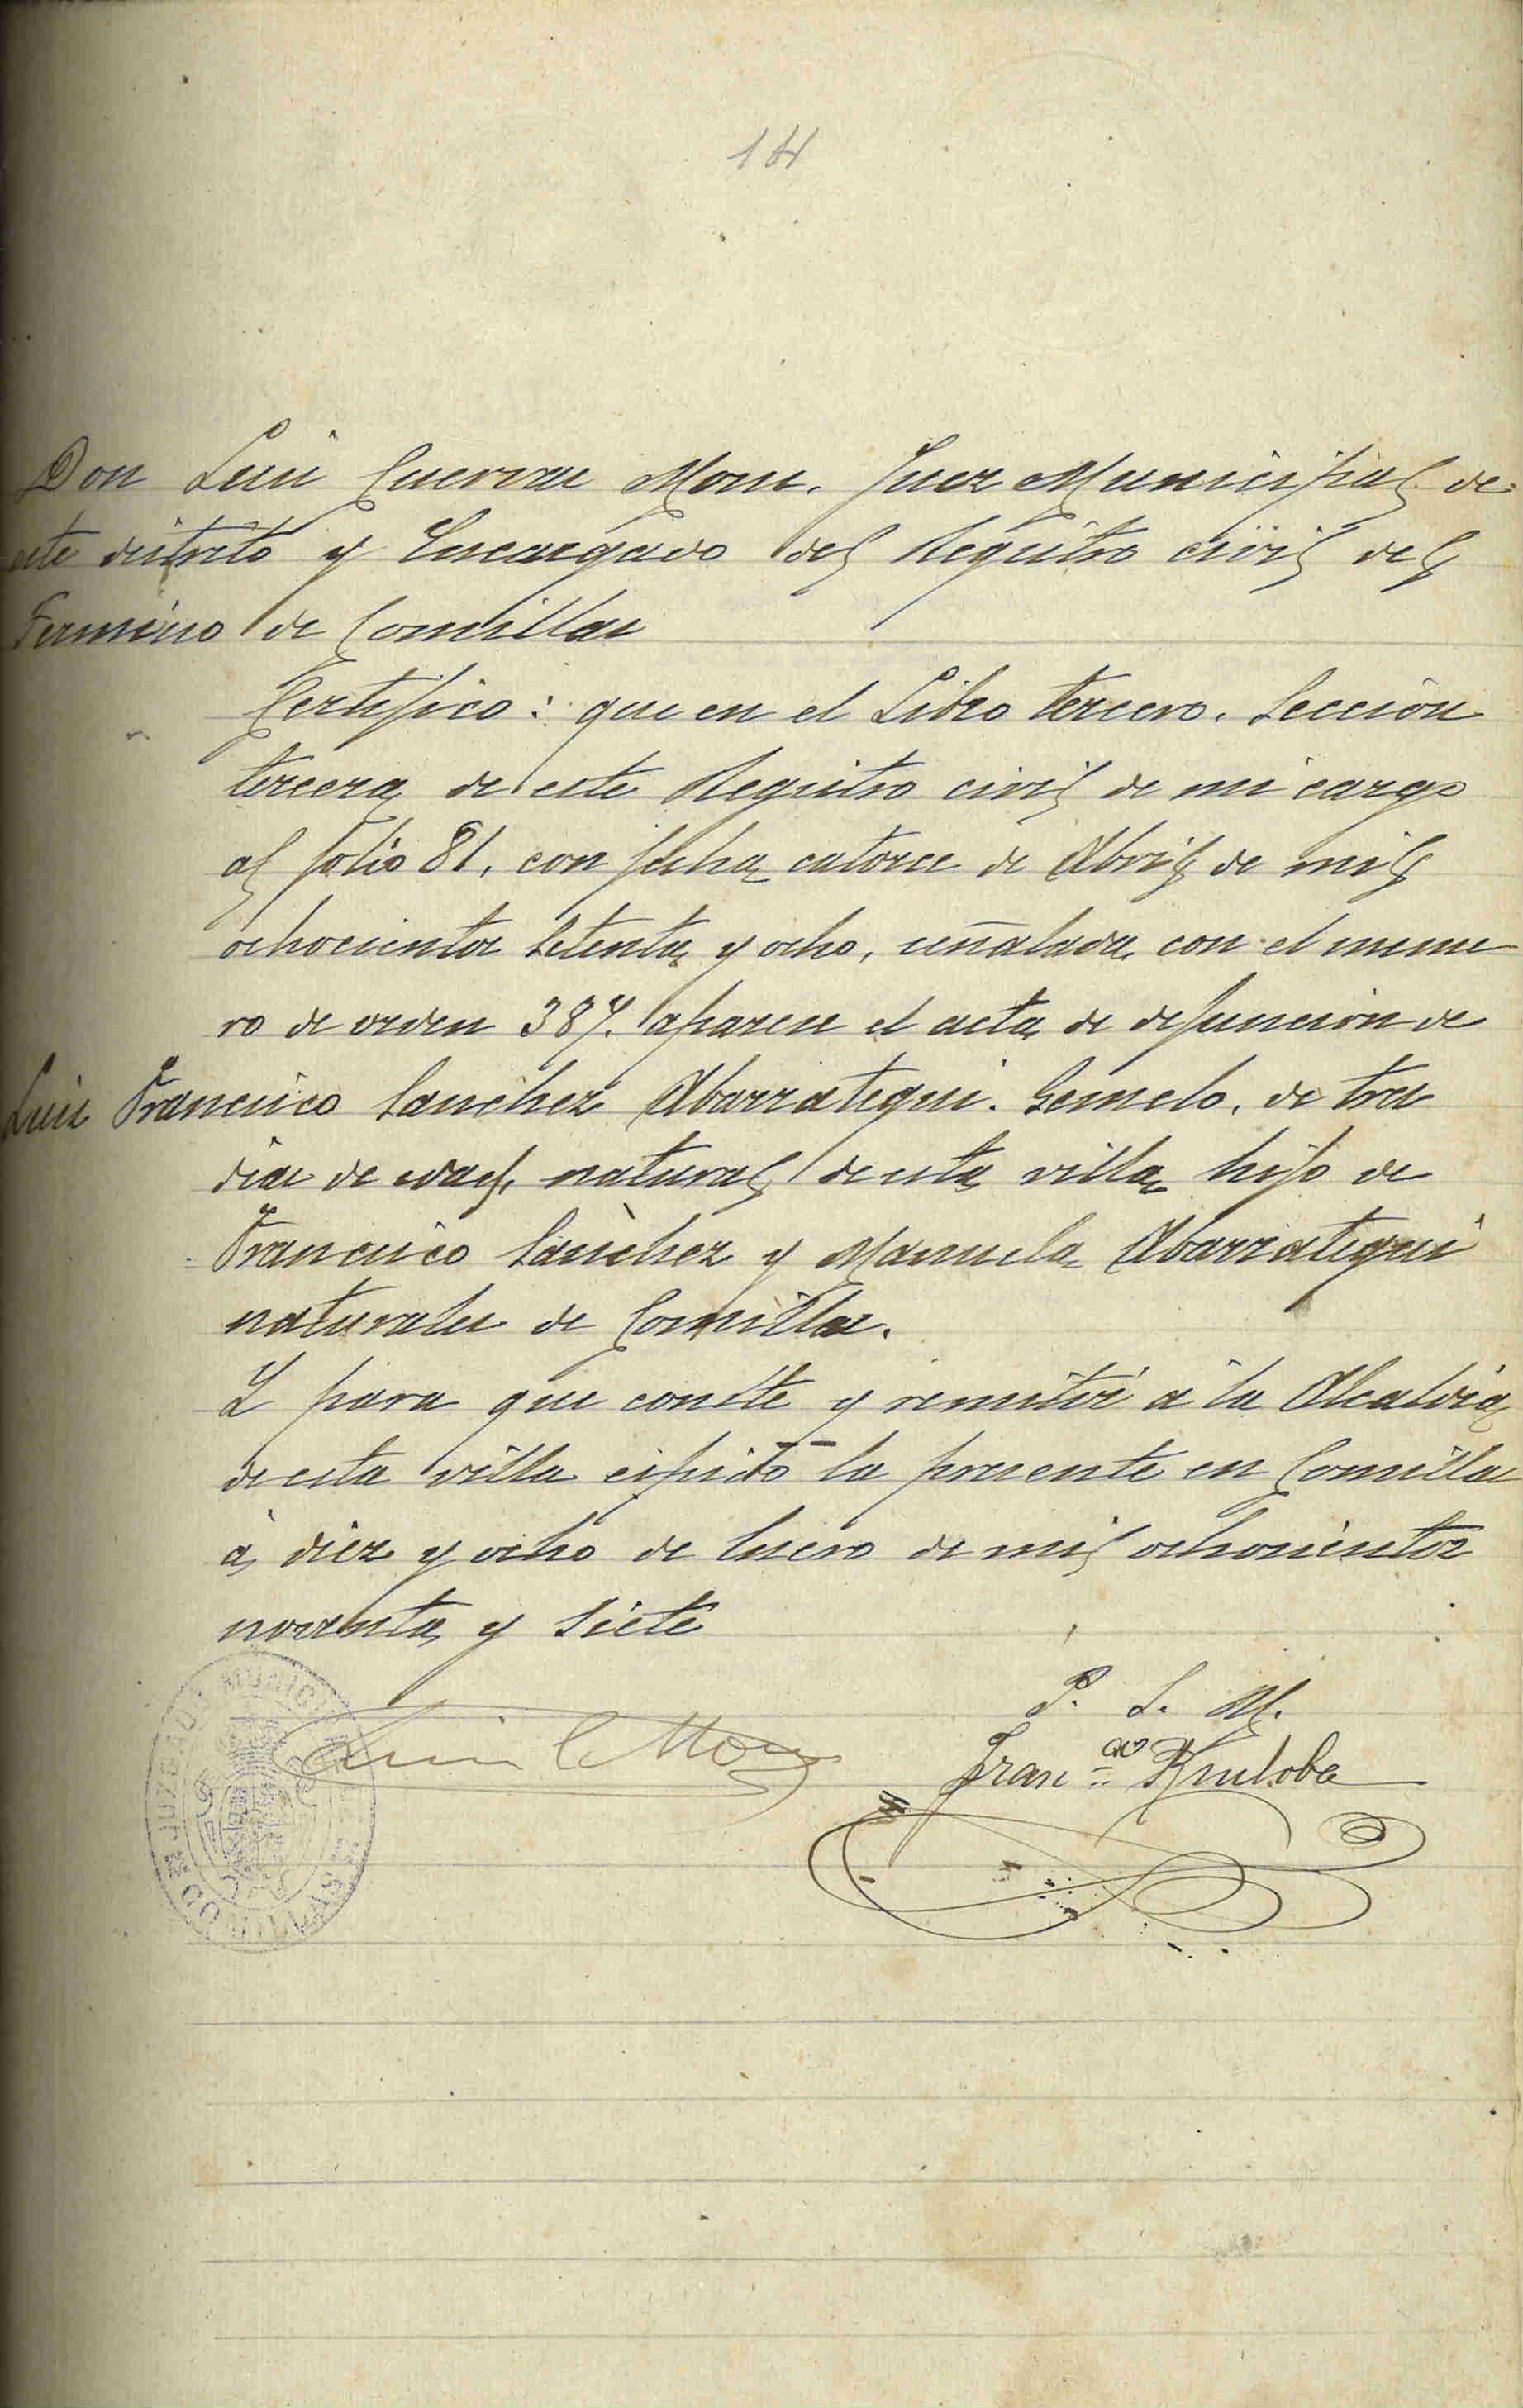 14
Don Luis Cuevas Mons. Juez Municipal de
este distrito y Encargado del Registro civil del
Termino de Comillas
Certifico: que en el Libro tercero. Sección
tercera de este Registro civil de mi cargo
al folio 81, con fecha catorce de Abril de mil
ochocientos setenta y ocho, señalada con el nume
ro de orden 387. aparece el acta de defuncion de
Luis Francisco Sanchez Abarrategui. Gemelo, de tres
dias de edad, natural de esta villa hijo de
Francisco Sanchez y Manuela Abarrategui
naturales de Comillas.
Y para que conste y remitir á la Alcaldia
de esta villa espido la presente en Comillas
á diez y ocho de Enero de mil ochocientos
noventa y siete
P. S. M.
Luis C Mons
Fran.co
JUZGADO MUNICIPAL DE COMILLAS